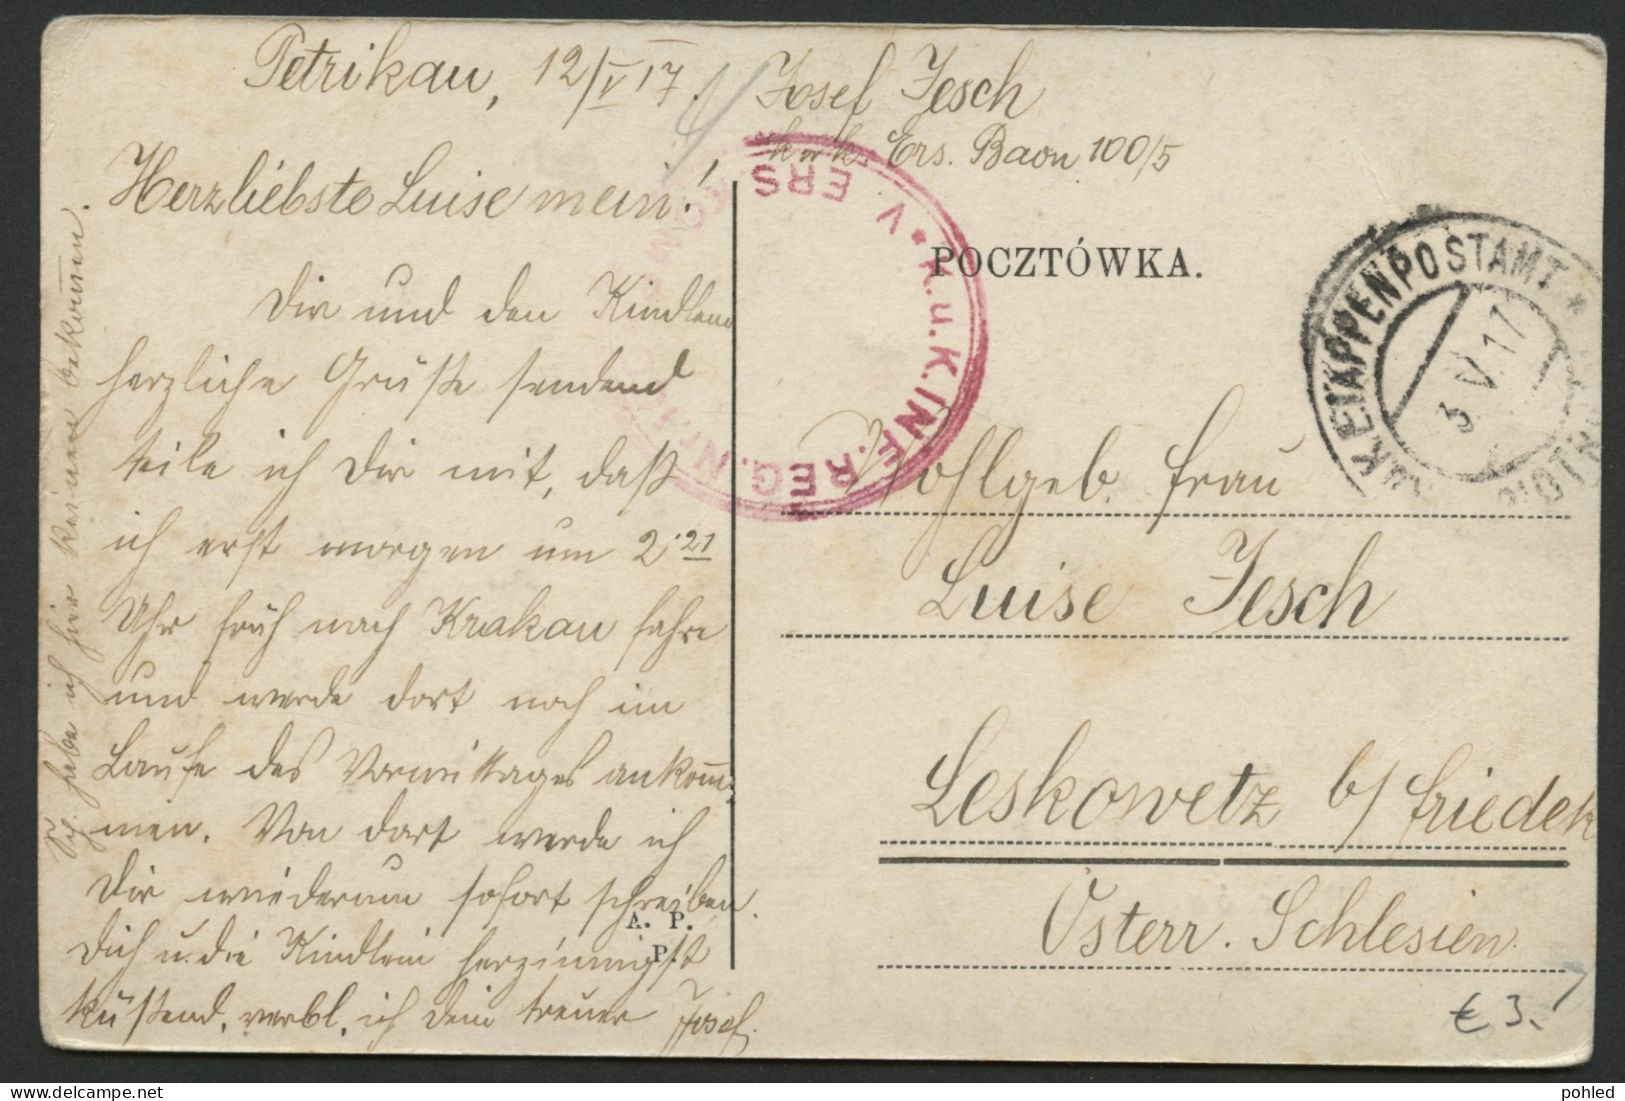 Petrikau, 12/V 17.
Herzliebste Luise mein!
Dir und den Kindlein
herzliche Grüße sendend
teile ich Dir mit, daß
ich erst morgen um 2:21
Uhr früh nach Krakau fahre
und werde dort noch im
Laufe des Vormittages ankom̅-
men. Von dort werde ich
Dir wiederum sofort schreiben.
Dich u. die Kindlein herzinnigst
küßend, verbl. ich Dein treuer Josef.
habe ich hier keinen bekom̅en.
Josef Jesch
k. u. k. Ers. Baon 100/5
V * K.u.K. INF. REG. Nr.
ERS
POCZTÓWKA.
K.u.K. ETAPPENPOSTAMT *
3.V.17
PIOTRKÓW
Wohlgeb. Frau
Luise Jesch
Leskowetz b/ Friedek
Österr. Schlesien.
A. P.
P.
€ 3.-
pohled